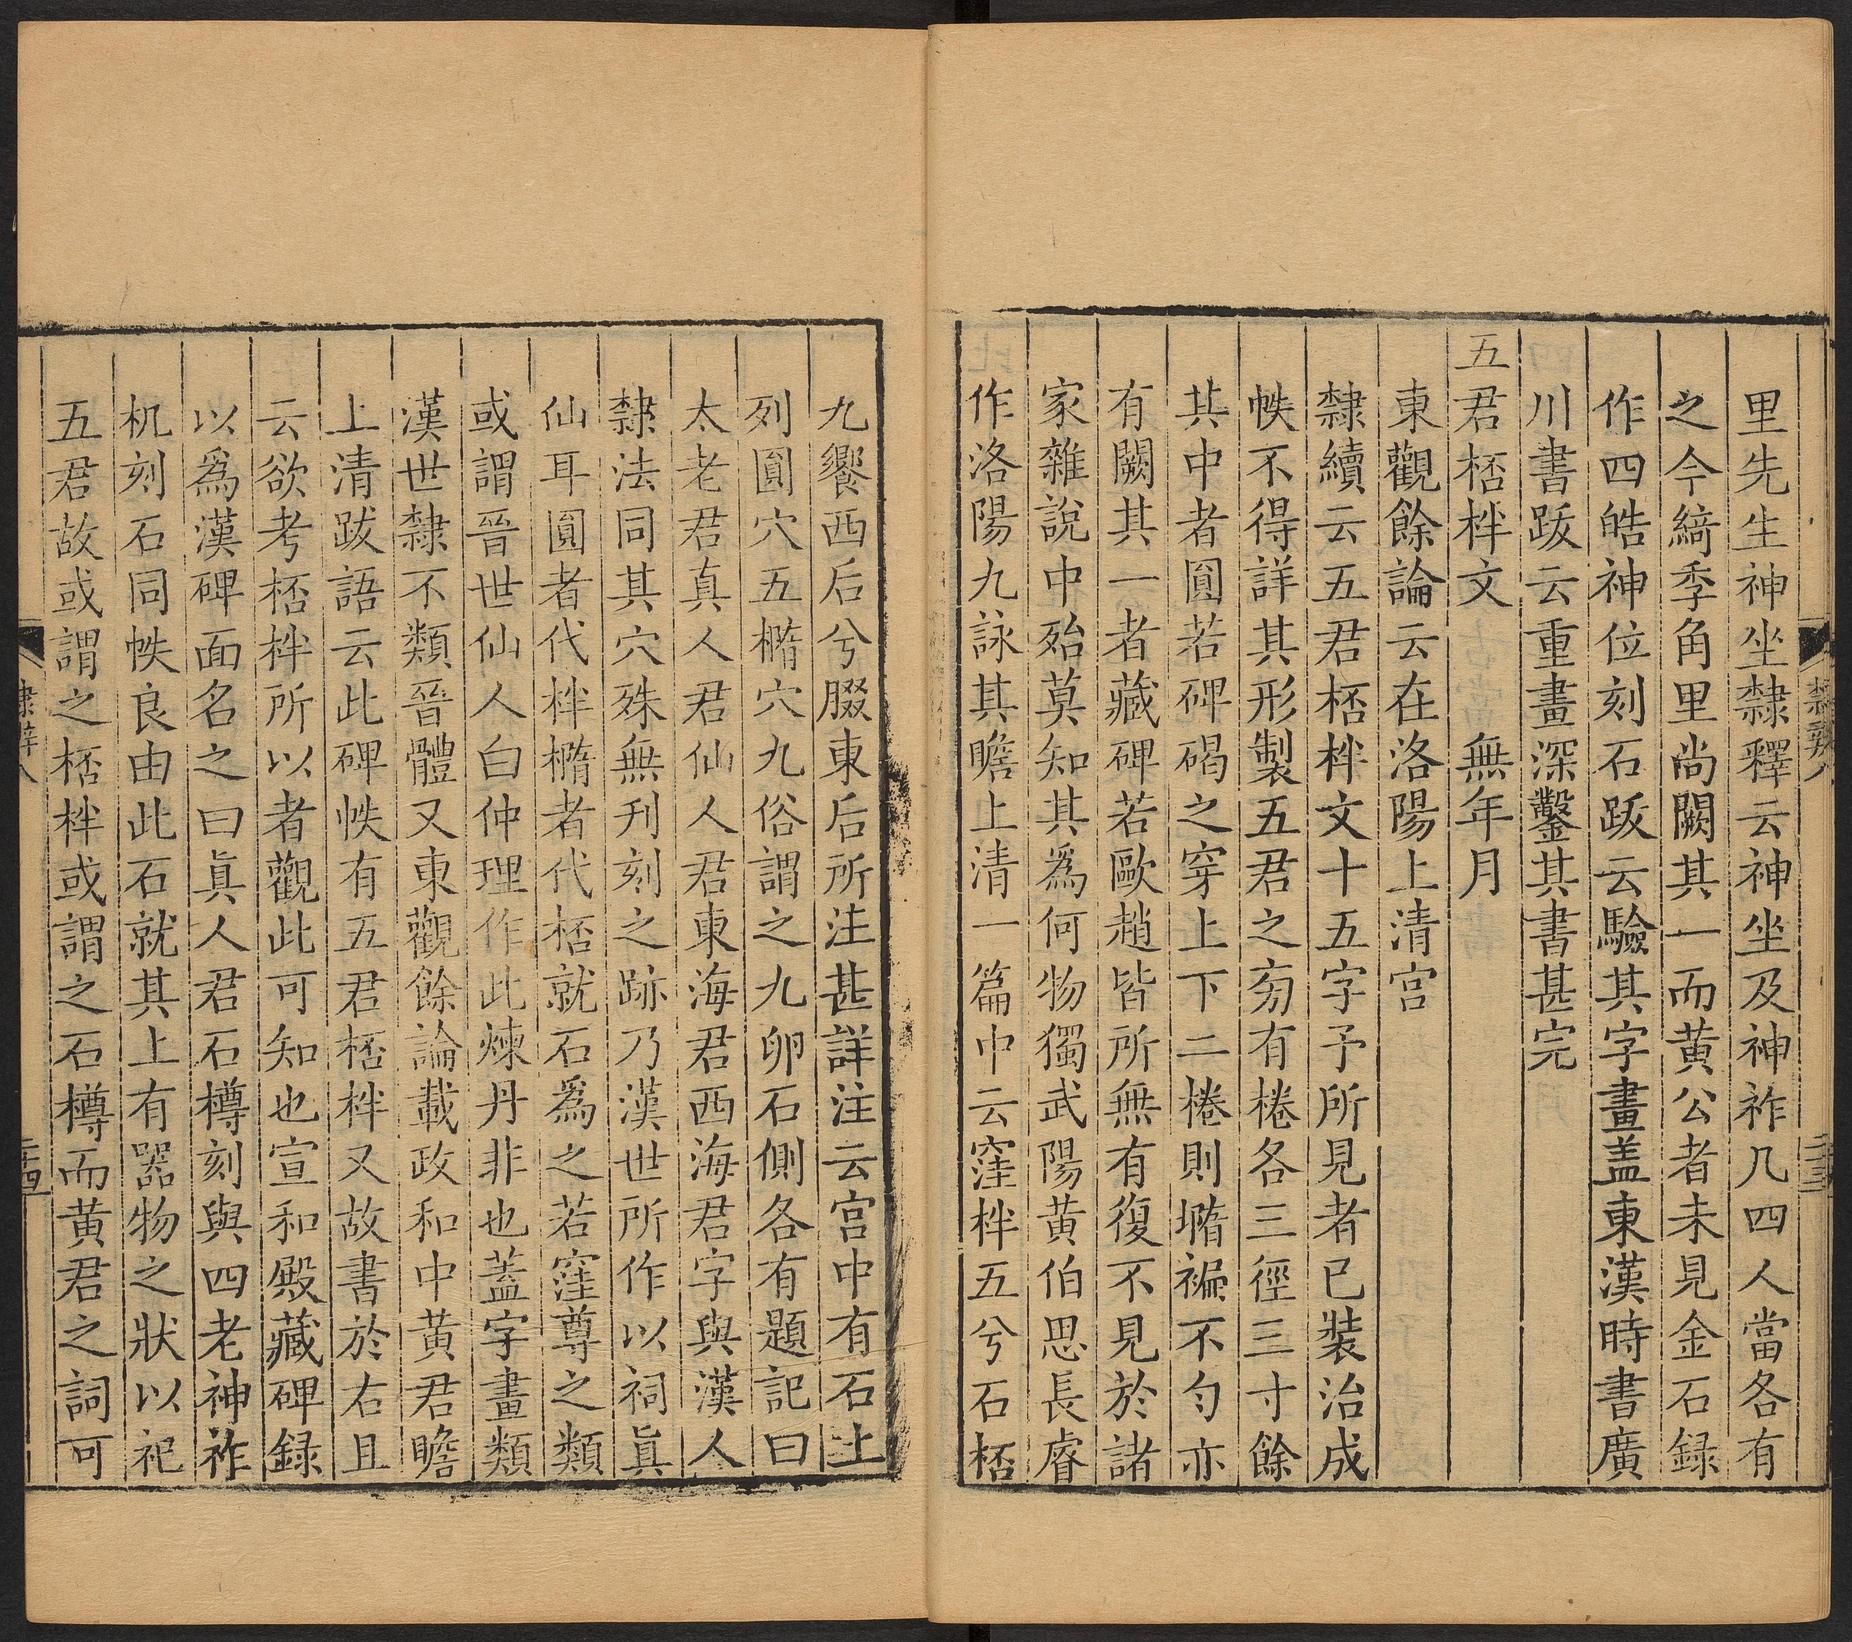 里先生神坐隸釋云神坐及神祚几四人當各有
之今綺季角里尚闕其一而黄公者未見金石録
作四皓神位刻石跋云驗其字畫盖東漢時書廣
川書跋云重畫深鑿其書甚完
五君桮柈文　　無年月
東觀餘論云在洛陽上清宮
隸續云五君桮柈文十五字予所見者已裝治成
帙不得詳其形製五君之旁有棬各三徑三寸餘
其中者圓若碑碣之穿上下二棬則墮褊不勻亦
有闕其一者藏碑若歐趙皆所無有復不見於諸
家雜說中殆莫知其爲何物獨武陽黄伯思長睿
作洛陽九詠其瞻上清一篇中云窪柈五兮石桮
九饗西后兮腏東后所注甚詳注云宮中有石上
列圓穴五橢穴九俗謂之九卵石側各有題記曰
太老君真人君仙人君東海君西海君字與漢人
隸法同其穴殊無刋刻之跡乃漢世所作以祠眞
仙耳圓者代柈橢者代桮就石爲之若窪尊之類
或謂晉世仙人白仲理作此煉丹非也蓋字畫類
漢世隸不類晉體又東觀餘論載政和中黄君瞻
上清跋語云此碑帙有五君桮柈又故書於右且
云欲考桮柈所以者觀此可知也宣和殿藏碑録
以爲漢碑面名之曰眞人君石樽刻與四老神祚
机刻石同帙良由此石就其上有噐物之狀以祀
五君故或謂之桮柈或謂之石樽而黄君之詞可
隸辨八
二十四